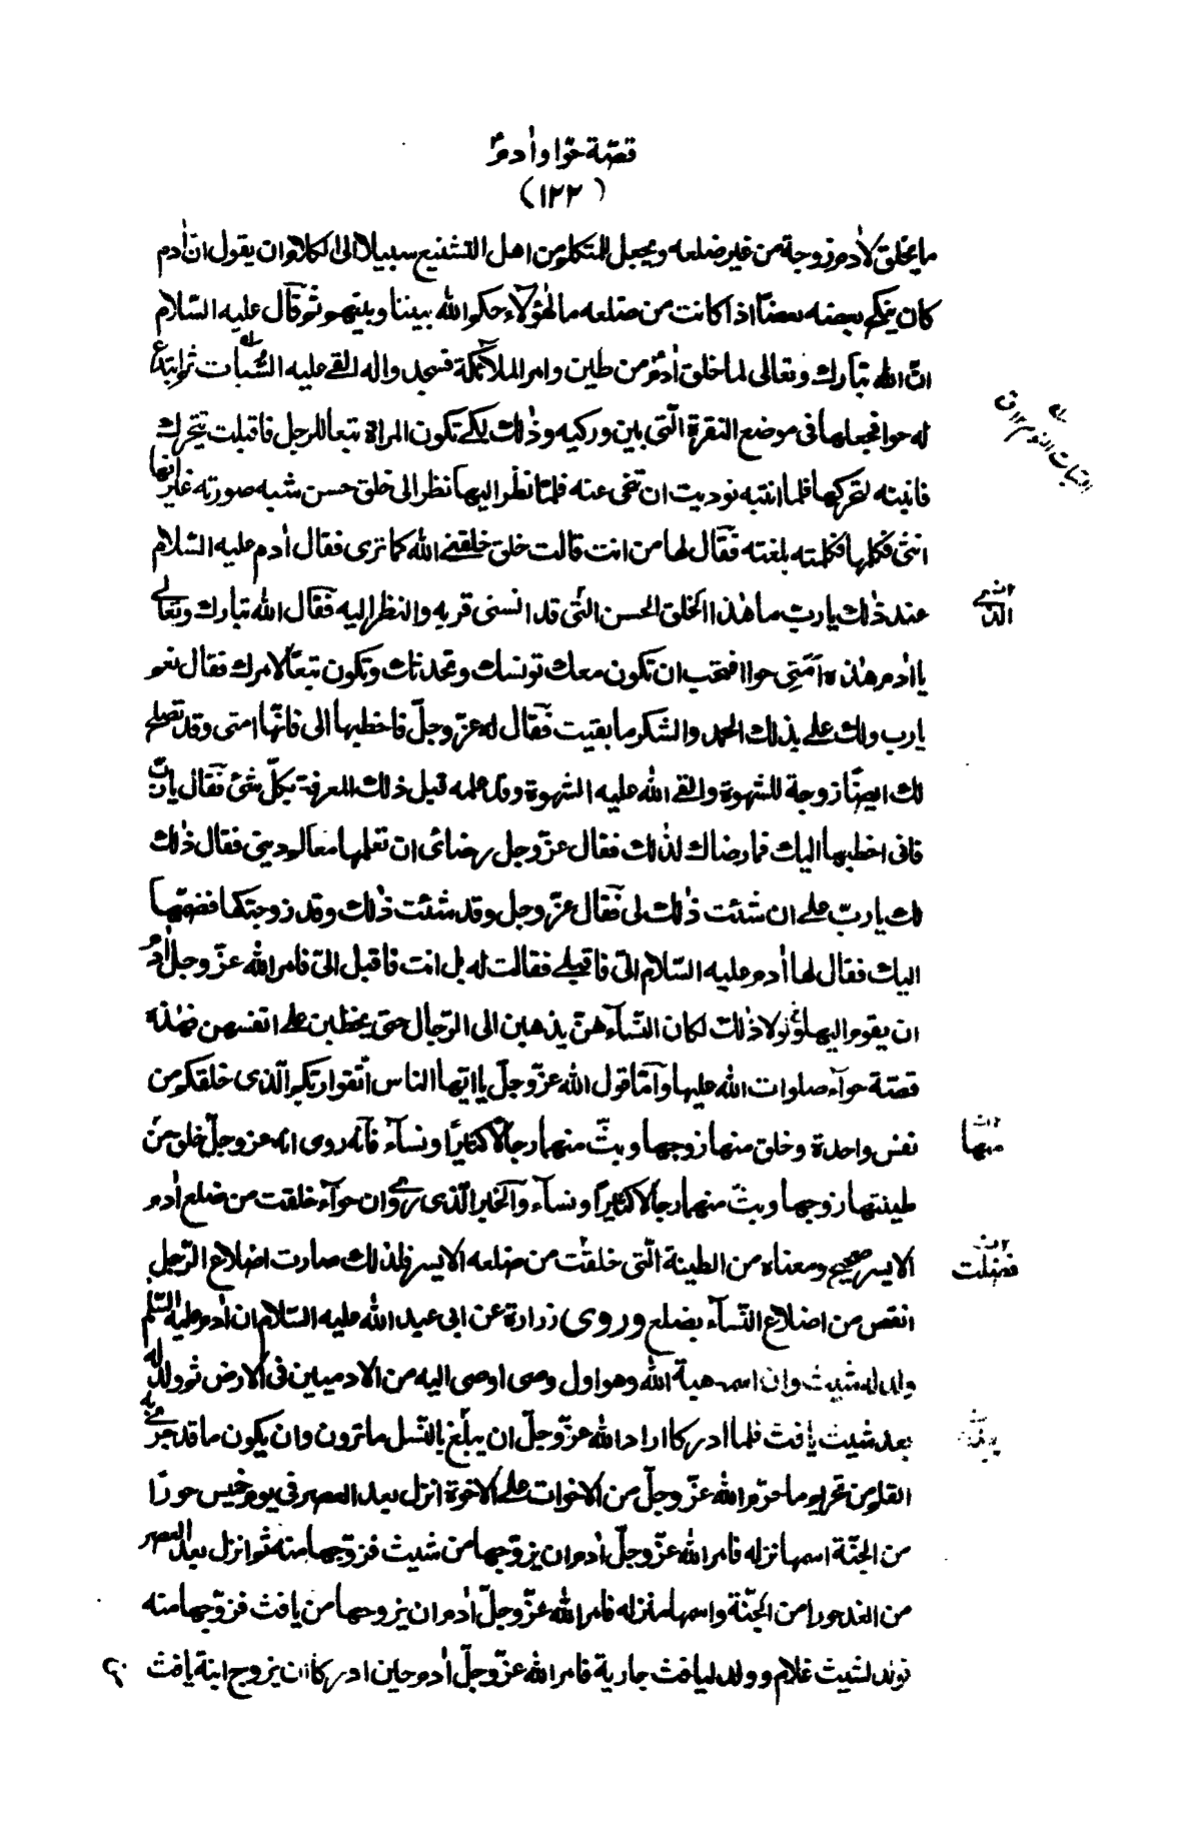 قصّة حوّا وادمؑ
(١٢٢)
ما يخلق لادم زوجة من غير ضلعه ويجعل للمتكلم من اهل التشنيع سبيلا الى الكلام ان يقول ان ادم
كان ينكح بعضه بعضًا اذا كانت من ضلعه ما لهؤلاء حكم الله بيننا وبينهم ثم قال عليه السّلام
انّ الله تبارك وتعالى لما خلق ادمؑ من طين وامر الملائكة فسجدوا له القى عليه السُّبات ثم ابتدع
له حوا فجعلها فى موضع النقرة الّتى بين وركيه وذلك لكى تكون المراة تبعا للرجل فاقبلت تتحرك
فانتبه لتحركها فلما انتبه نوديت ان تنحى عنه فلمّا نظر اليها نظر الى خلق حسن شبه صورته غير انها
انثى فكلمها فكلمته بلغته فقال لها من انت قالت خلق خلقنى الله كما ترى فقال ادم عليه السّلام
عند ذلك يا ربّ ما هذا الخلق الحسن الّتى قد انسنى قربه والنظر اليه فقال الله تبارك وتعالى
يا ادم هذه اَمَتِى حوا افتحب ان تكون معك تونسك وتحدثك وتكون تبعًا لامرك فقال نعم
يا رب ولك على بذلك الحمد والشكر ما بقيت فقال له عزّ وجلّ فاخطبها الى فانّها امتى وقد تصلح
لك ايضًا زوجة للشهوة والقى الله عليه الشهوة وقد علمه قبل ذلك المعرفة بكلّ شئ فقال يا ربّ
فانى اخطبها اليك فما رضاك لذلك فقال عزّ وجل رضائى ان تعلمها معالم دينى فقال ذلك
لك يا ربّ على ان شئت ذلك لى فقال عزّ وجل وقد شئت ذلك وقد زوجتكها فضمّها
اليك فقال لها ادم عليه السّلام الىّ فاقبلى فقالت له بل انت فاقبل الىّ فامر الله عزّ وجلّ ادمؑ
ان يقوم اليها ولولا ذلك لكان النّسآء هنّ يذهبن الى الرّجال حتى يخطبن على انفسهن فهذه
قصّة حوآء صلوات الله عليها وامّا قول الله عزّ وجلّ يا ايّها الناس اتّقوا ربّكم الّذى خلقكم من
نفس واحدة وخلق منها زوجها وبثّ منهما رجالًا كثيرًا ونسآء فانّه روى انّه عز وجلّ خلق من
طينتها زوجها وبثّ منهما رجالا كثيرًا ونسآء والخبر الّذى روى ان حوآء خلقت من ضلع ادم
الايسر صحيح ومعناه من الطينة الّتى خلقت من ضلعه الايسر فلذلك صارت اضلاع الرّجل
انقص من اضلاع النّسآء بضلع وروى زرارة عن ابى عبد الله عليه السّلام ان ادم عليه السّلم
ولد له شيث وان اسمه هبة الله وهو اول وصى اوصى اليه من الادميين فى الارض ثم ولد له
بعد شيث يافث فلما ادركا اراد الله عزّ وجلّ ان يبلّغ بالنّسل ما ترون وان يكون ما قد جرى به
القلم من تحريم ما حرّم الله عزّ وجلّ من الاخوات على الاخوة انزل بعد العصر فى يوم خميس حورًا
من الجنّة اسمها نزله فامر الله عزّ وجلّ ادم ان يزوّجها من شيث فزوّجها منه ثم انزل بعد العصر
من الغد حورا من الجنّة واسمها منزله فامر الله عزّ وجلّ ادم ان يزوجها من يافث فزوّجها منه
فولد لشيث غلام وولد ليافث جارية فامر الله عزّ وجلّ ادم حين ادركا ان يزوج ابنة يافث
الذى
منها
فضلت